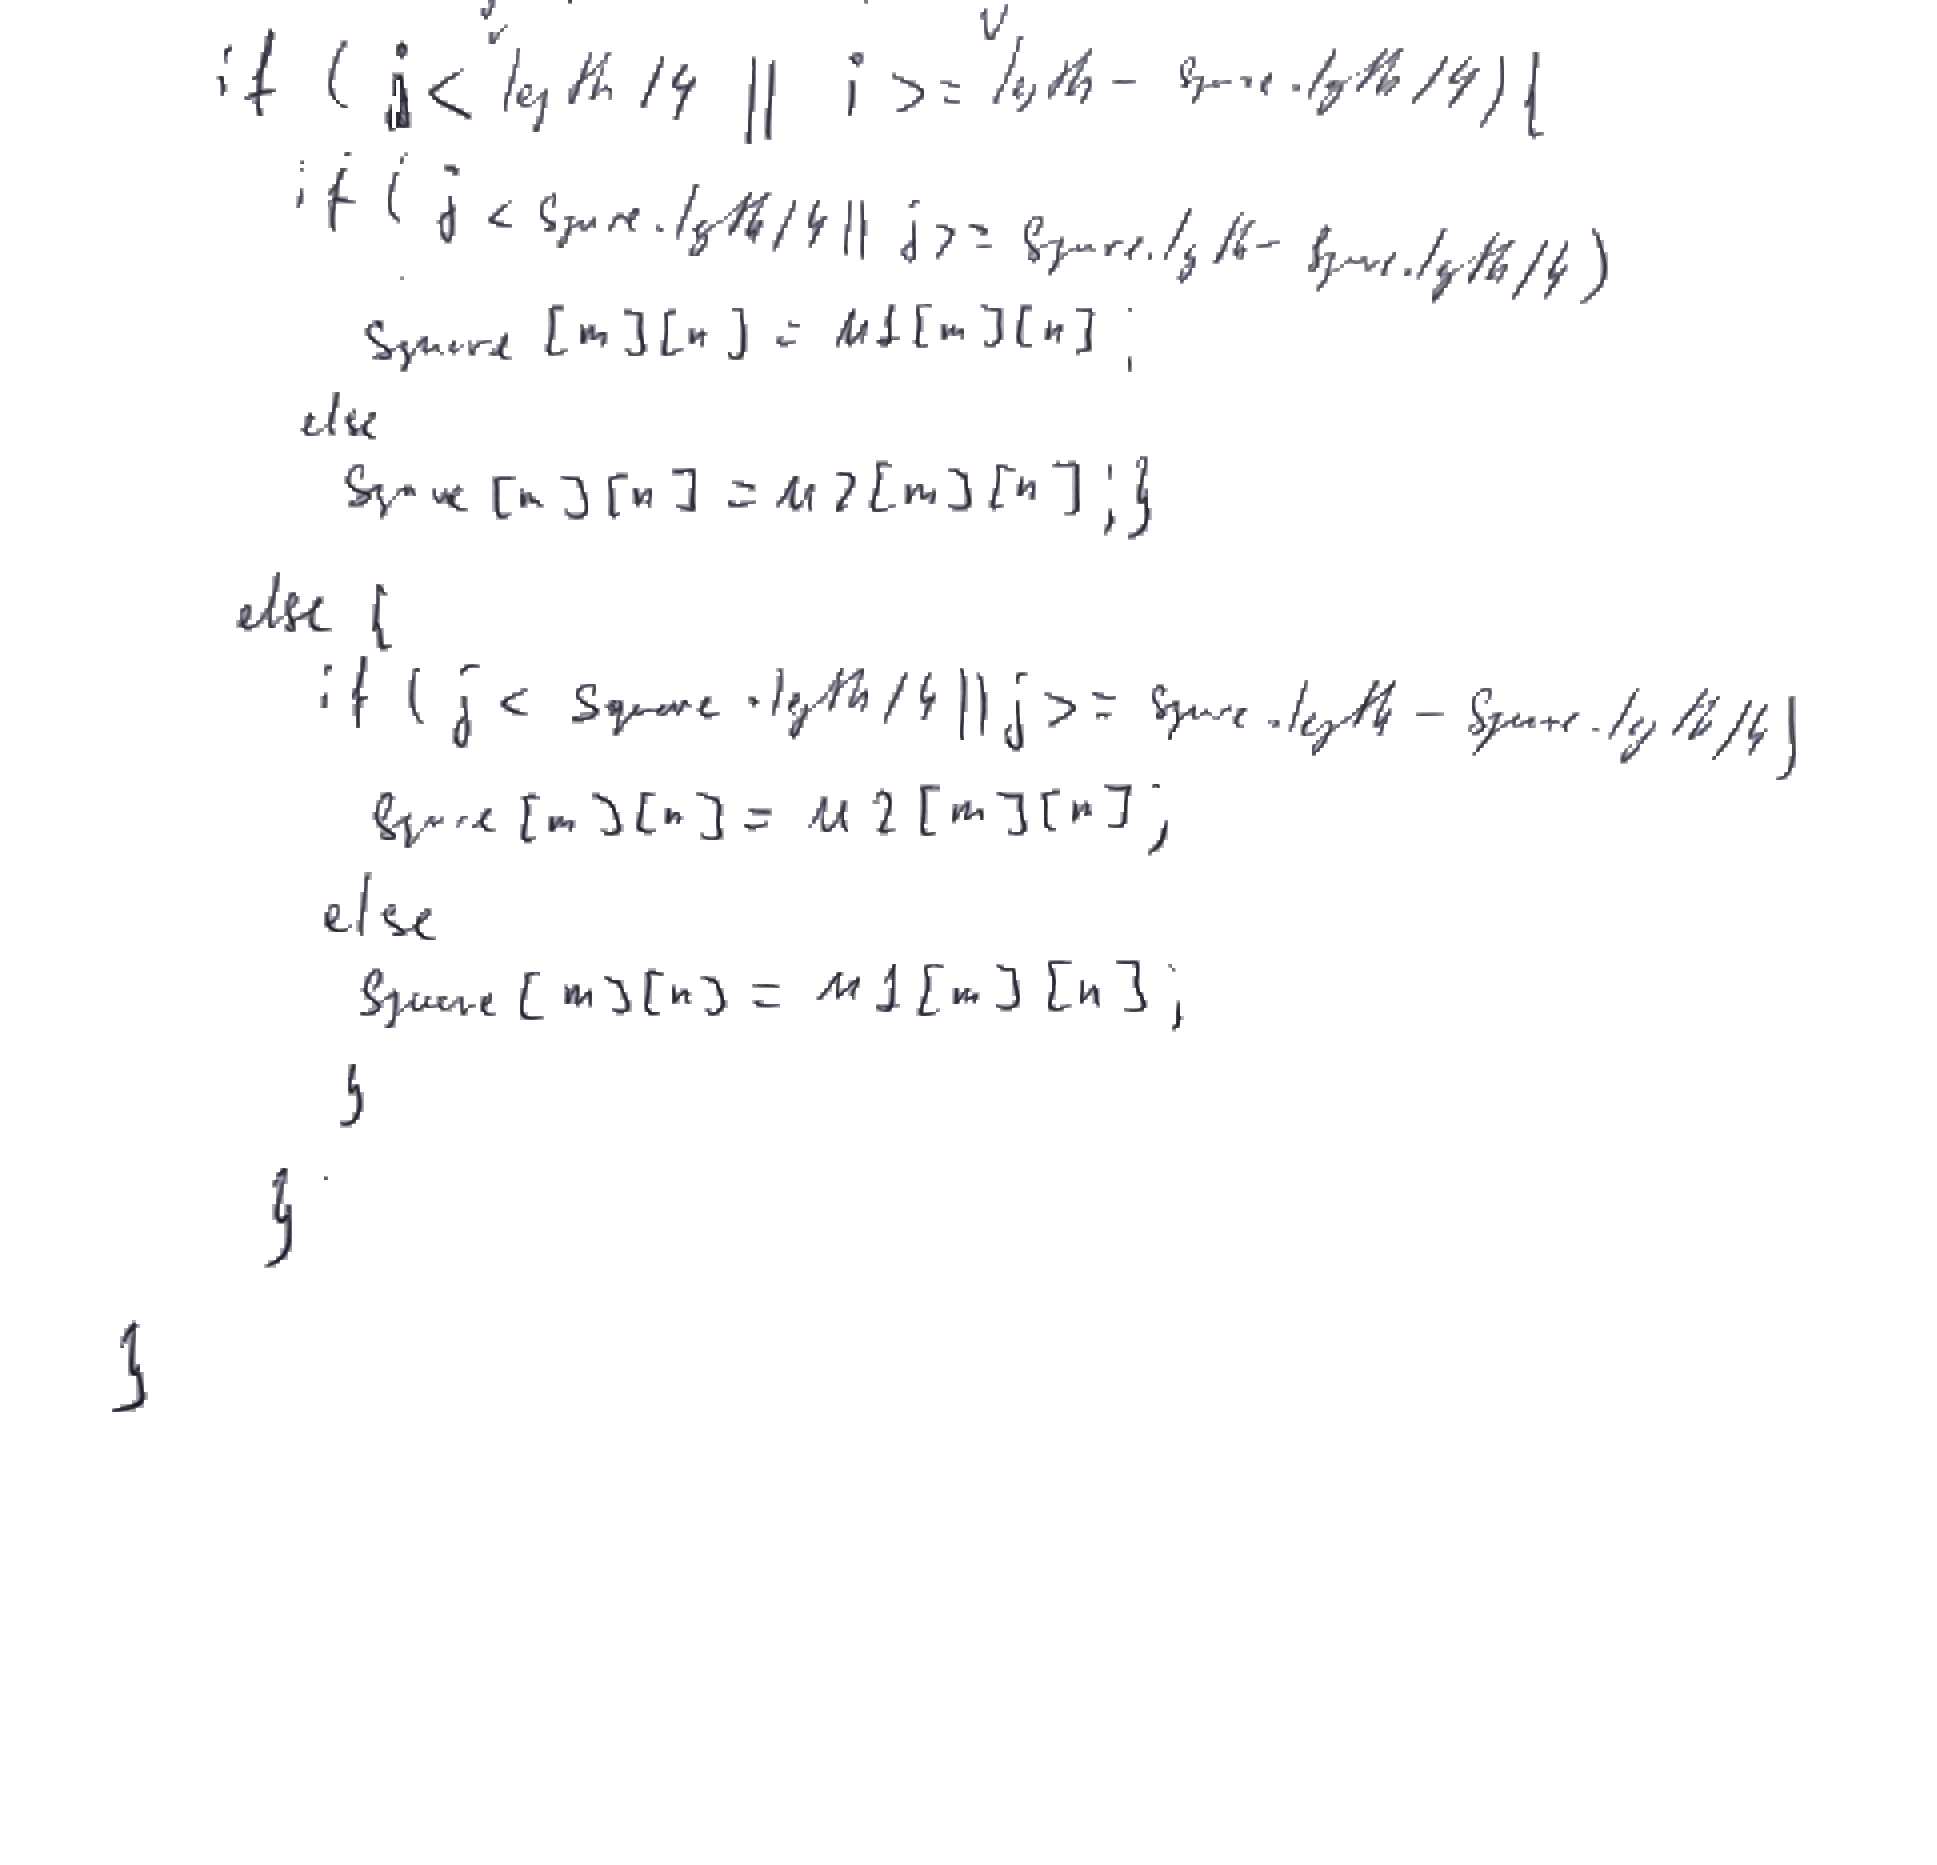 if ( i < length / 4 || i >= length - square.length / 4) {
if ( j < square.length / 4 || j >= square.length - square.length / 4 )
square [m][n] = M1[m][n];
else
square [m][n] = M2[m][n];}
else {
if ( j < square.length / 4 || j >= square.length - square.length / 4)
square [m][n] = M2[m][n];
else
square [m][n] = M1[m][n];
}
}
}